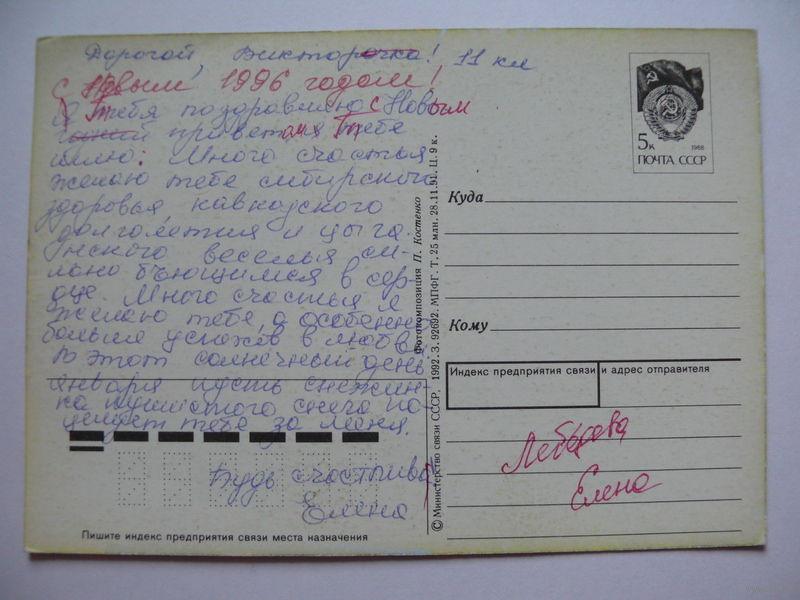 Дорогой, Виктор! 11 кл
С Новым 1996 годом!
Я тебя поздравляю с Новым
привет тебе
шлю: Много счастья
желаю тебе сибирского
здоровья, кавказского
долголетия и цыга-
нского веселья си-
льно бьющимся в сер-
дце. Много счастья я
желаю тебе, а особенно
больше успехов в любви.
В этот солнечный день
января пусть снежин-
ка пушистого снега по-
целует тебе за меня.
Будь счастлив
Елена
5к 1988
ПОЧТА СССР
Куда
Кому
Индекс предприятия связи и адрес отправителя
Лебедева
Елена
Пишите индекс предприятия связи места назначения
Фотокомпозиция П. Костенко
© Министерство связи СССР, 1992. З. 92692. МПФГ. Т. 25 млн. 28.11.91. Ц. 9 к.